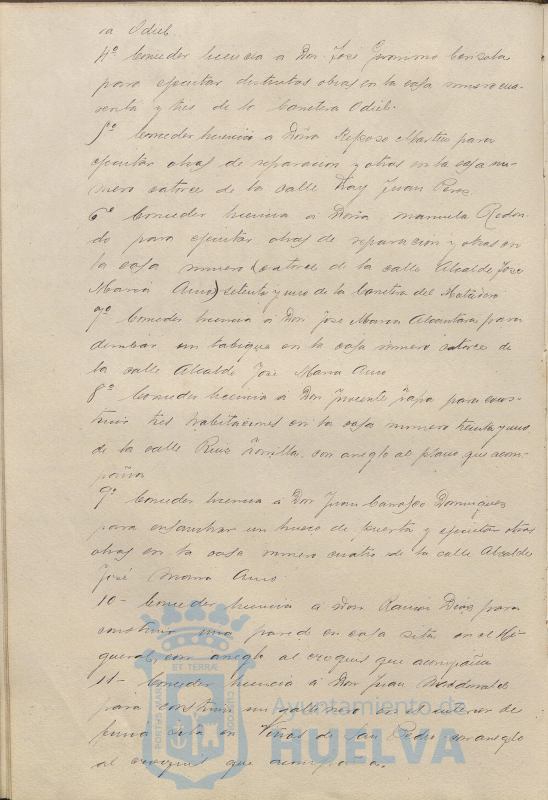 ra Odiel.
4º Conceder licencia a Don José Gerónimo
para ejecutar distintas obras en la casa número cua-
renta y tres de la Carretera Odiel.
5º Conceder licencia a Doña Reposo Martín para
ejecutar obras de reparación y otras en la casa nú-
mero catorce de la calle Fray Juan Perez
6º Conceder licencia a Doña Manuela Redon-
do para ejecutar obras de reparación y otras en
la casa número (catorce de la calle Alcalde José
María Amo) setenta y uno de la Carretera del Matadero
7º Conceder licencia a Don José María Alcantara para
derribar un tabique en la casa número catorce de
la calle Alcalde José María Amo
8º Conceder licencia a Don Vicente para cons-
truir tres habitaciones en la casa número treinta y uno
de la calle Ruiz Zorrilla, con arreglo al plano que acom-
paña
9º Conceder licencia a Don Juan Carrasco Dominguez
para ensanchar un hueco de puerta y ejecutar otras
obras en la casa número cuatro de la calle Alcalde
José María Amo
10- Conceder licencia a Don Ramón Díaz para
construir una pared en casa sita en el Hi-
gueral, con arreglo al croquis que acompaña
11- Conceder licencia a Don Juan
para construir un en el interior de
finca sita en Viñas de San Pedro con arreglo
al croquis que acompaña.
Ayuntamiento de
HUELVA
ET TERRÆ
PORTUS MARIS
CUSTODIA